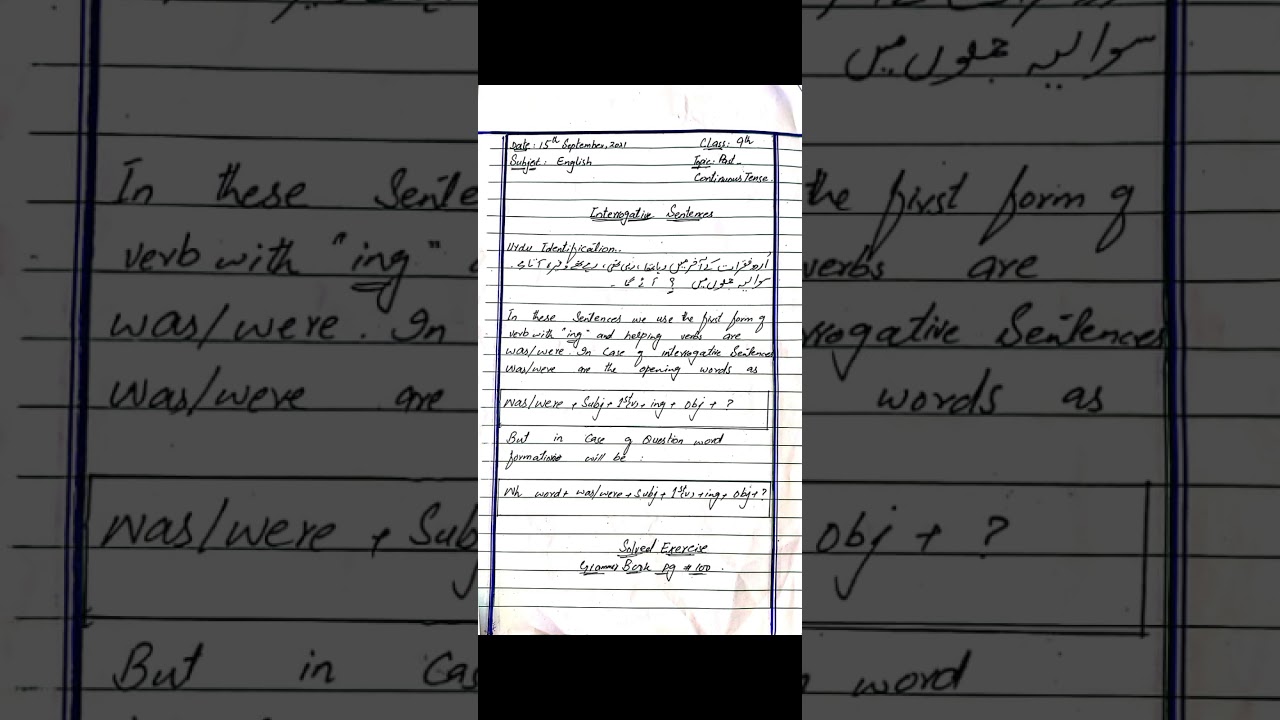 Date: 15th September, 2021 Class: 9th
Subject: English Topic: Past
Continuous Tense.
Interrogative Sentences
Urdu Identification.
اُردو فقرات کے آخر میں رہا تھا، رہی تھی، رہے تھے وغیرہ آتا ہے۔
سوالیہ جملوں میں ? آئے گا۔
In these Sentences we use the first form of
verb with "ing" and helping verbs are
was/were. In Case of interrogative Sentences
was/were are the opening words as
Was/were + Subj + 1st(v) + ing + Obj + ?
But in Case of Question word
formation will be :
Wh word + was/were + Subj + 1st(v) + ing + Obj + ?
Solved Exercise
Grammar Book pg # 100.